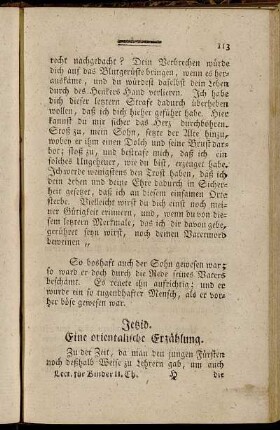 113
recht nachgedacht? Dein Verbrechen würde
dich auf das Blutgerüste bringen, wenn es her-
auskäme, und du würdest daselbst dein Leben
durch des Henkers Hand verlieren. Ich habe
dich dieser letztern Strafe dadurch überheben
wollen, daß ich dich hieher geführt habe. Hier
kannst du mir sicher das Herz durchbohren.
Stoß zu, mein Sohn, setzte der Alte hinzu,
wobey er ihm einen Dolch und seine Brust dar-
bot; stoß zu, und bestrafe mich, daß ich ein
solches Ungeheuer, wie du bist, erzeuget habe.
Ich werde wenigstens den Trost haben, daß ich
dein Leben und deine Ehre dadurch in Sicher-
heit gesetzt, daß ich an diesem einsamen Orte
sterbe. Vielleicht wirst du dich einst noch mei-
ner Gütigkeit erinnern, und, wenn du von die-
sem letztern Merkmale, das ich dir davon gebe,
gerühret seyn wirst, noch deinen Vatermord
beweinen „
So boshaft auch der Sohn gewesen war;
so ward er doch durch die Rede seines Vaters
beschämt. Es reuete ihn aufrichtig; und er
wurde ein so tugendhafter Mensch, als er vor-
her böse gewesen war.
Jetzid.
Eine orientalische Erzählung.
Zu der Zeit, da man den jungen Fürsten
noch deßhalb Weise zu Lehrern gab, um auch
Lect. für Kinder II. Th. H die